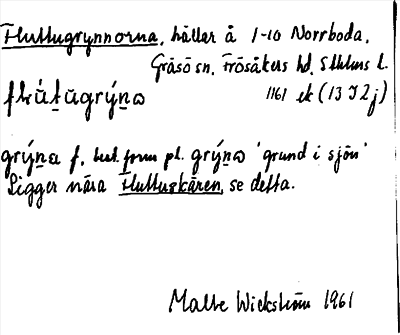 Fluttugrynnorna, hällar å 1-10 Norrboda,
Gräsö sn, Frösåkers hd, Sthlms l.
1161 ek (13 I 2 j)
grýn̠a f. best. form pl. grýn̠ɷ "grund i sjön"
Ligger nära Fluttuskären, se detta.
Malte Wickström 1961